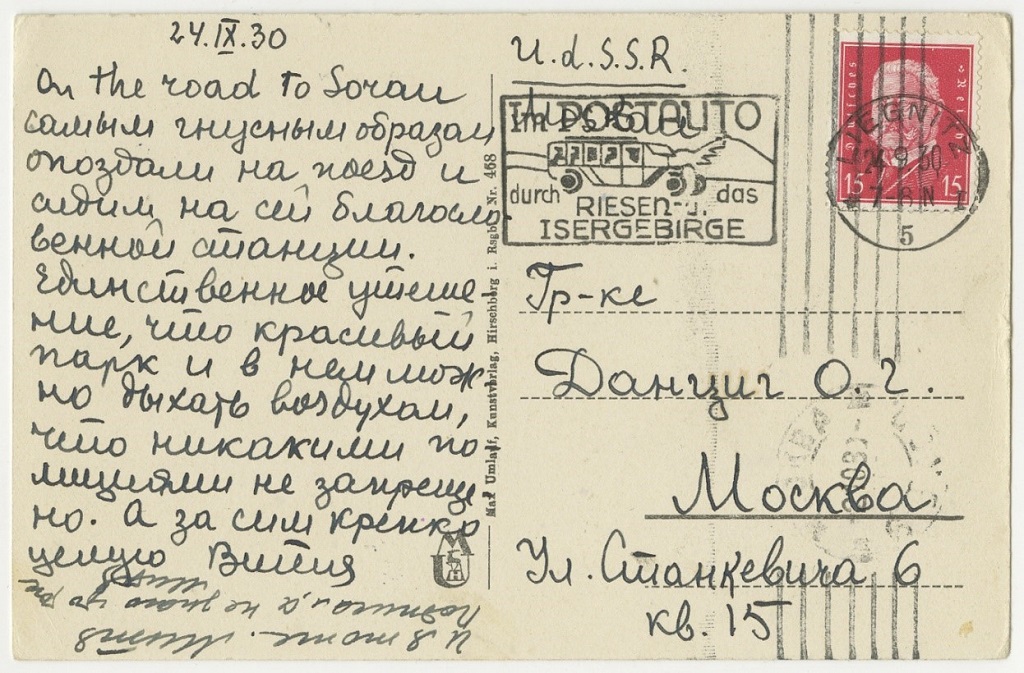 24.IX.30
On the road to Sorau
самым гнусным образом
опоздали на поезд и
сидим на сей благосло
венной станции.
Единственное утеше
ние, что красивый
парк и в нем мож
но дыхать воздухом,
что никакими по
лициями не запреще
но. А за сим крепко
целую Витя
И я тоже. Митя
подписал, а не знаю
Max Umlauf, Kunstverlag, Hirschberg i. Rsgb. Nr. 468
U.d.S.S.R.
Im POSTAUTO
durch das
RIESEN-u.
ISERGEBIRGE
Deutsches Reich
15 15
LIEGNITZ
24.9.30
5
Гр-ке
Данциг О.Г.
Москва
Ул. Станкевича 6
кв. 15